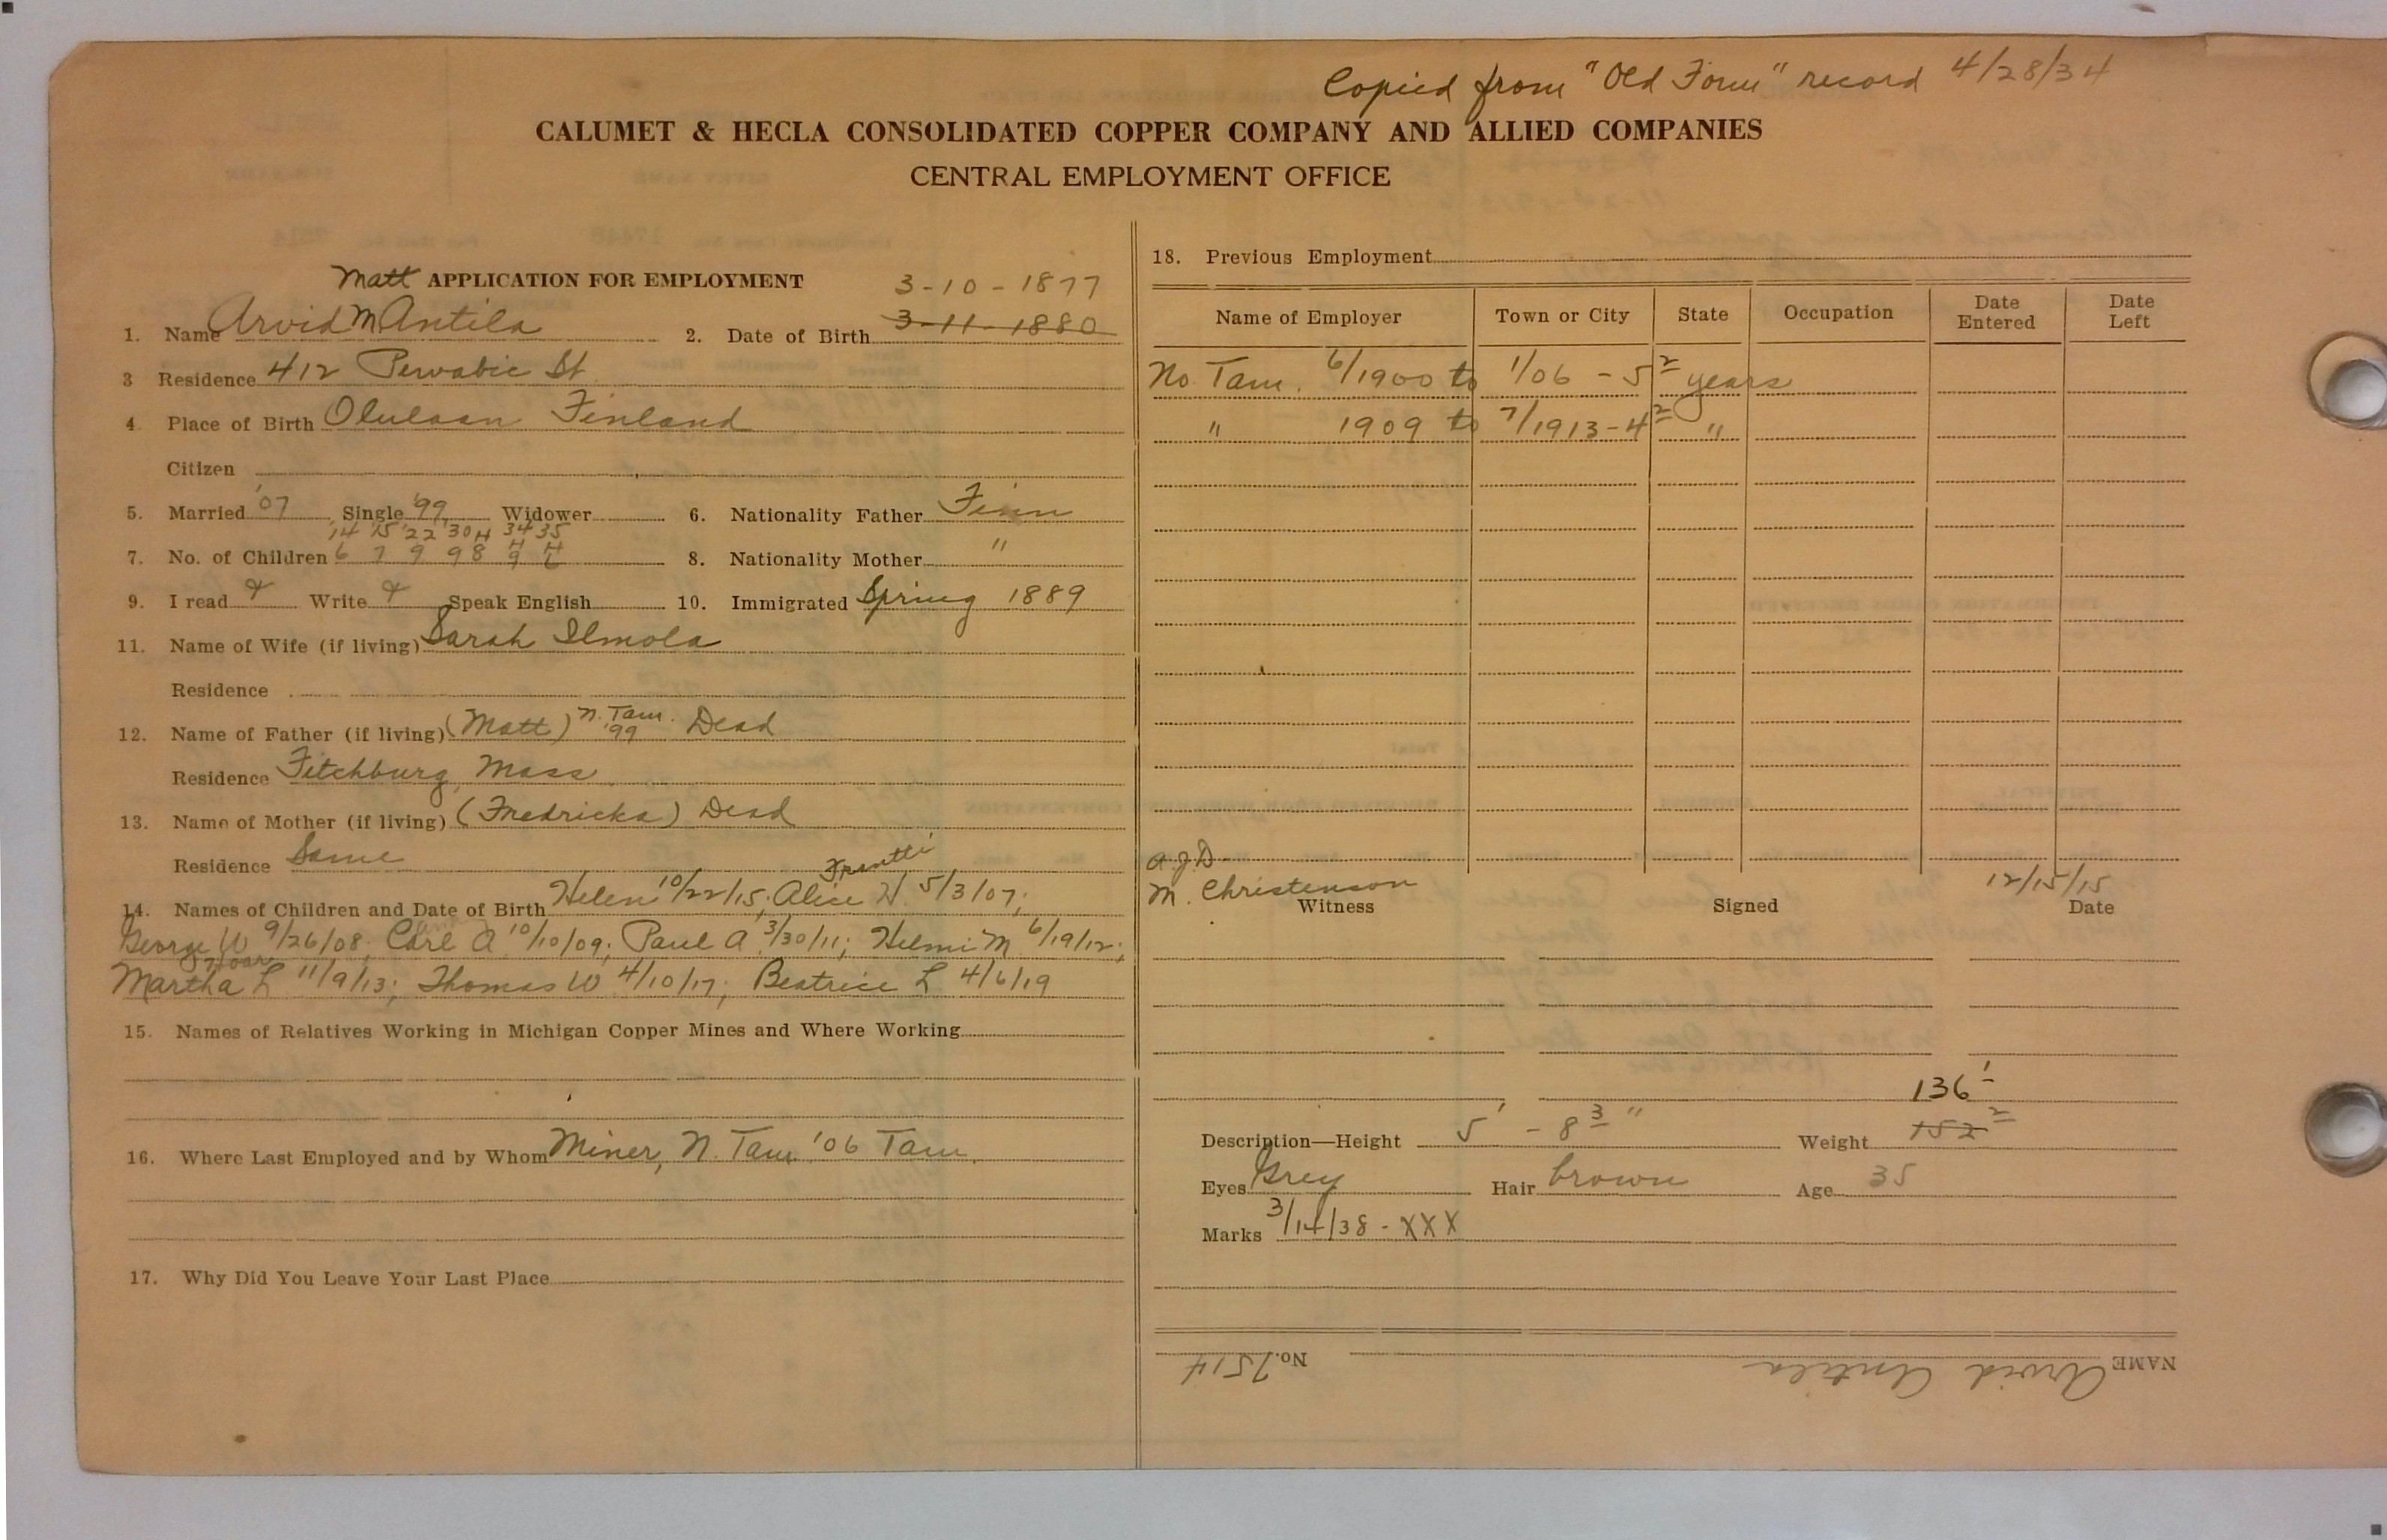 Copied from "Old Form" record 4/28/34
CALUMET & HECLA CONSOLIDATED COPPER COMPANY AND ALLIED COMPANIES
CENTRAL EMPLOYMENT OFFICE
Matt APPLICATION FOR EMPLOYMENT
3-10-1877
1. Name Arvid M Antila 2. Date of Birth 3-11-1880
3 Residence 412 Pewabic St
4. Place of Birth Olulaan Finland
Citizen
5. Married '07 Single '99 Widower 6. Nationality Father Finn
'14 '15 '22 '30 H 34 35
7. No. of Children 6 7 9 9 8 H 9 H 6 8. Nationality Mother "
9. I read Write Speak English 10. Immigrated Spring 1889
11. Name of Wife (if living) Sarah Ilmola
Residence
12. Name of Father (if living) (Matt) N. Tam. '99 Dead
Residence Fitchburg, Mass
13. Name of Mother (if living) (Fredricka) Dead
Residence Same
Frantti
14. Names of Children and Date of Birth Helen 10/22/15; Alice H. 5/3/07;
George W 9/26/08; Carl A 10/10/09; Paul A 3/30/11; Helmi M 6/19/12;
Martha L 11/9/13; Thomas W 4/10/17; Beatrice L 4/6/19
15. Names of Relatives Working in Michigan Copper Mines and Where Working
16. Where Last Employed and by Whom Miner, N. Tam '06 Tam.
17. Why Did You Leave Your Last Place
18. Previous Employment
Name of Employer Town or City State Occupation Date Entered Date Left
No. Tam. 6/1900 to 1/06 - 5 2 years
" 1909 to 7/1913 - 4 2 "
A.J.D.
M. Christenson 12/15/15
Witness Signed Date
136 1
Description—Height 5' - 8 3" Weight 152 2
Eyes Grey Hair brown Age 35
Marks 3/14/38 - XXX
NAME Arvid Antila No. 7514